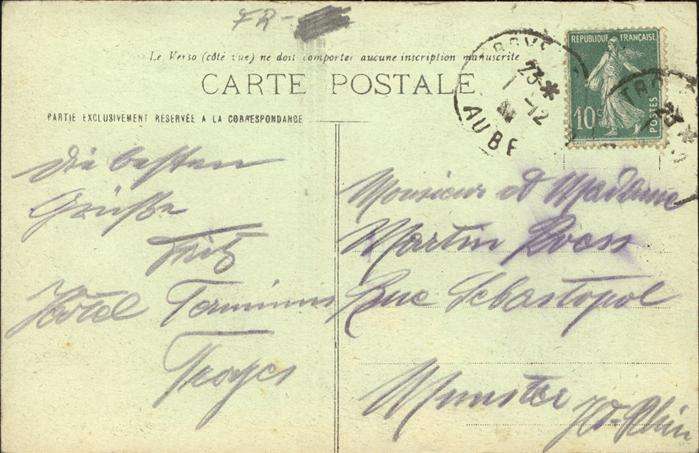 FR-
Le Verso (côté vue) ne doit comporter aucune inscription manuscrite
CARTE POSTALE
PARTIE EXCLUSIVEMENT RÉSERVÉE A LA CORRESPONDANCE
TROYES
23 *
1 -12
AUBE
REPUBLIQUE FRANÇAISE
10c
POSTES
TRO
23 *
die besten
Grüße
Fritz
Hôtel Terminus
Troyes
Monsieur et Madame
Martin
Rue Sebastopol
Munster
Ht-Rhin